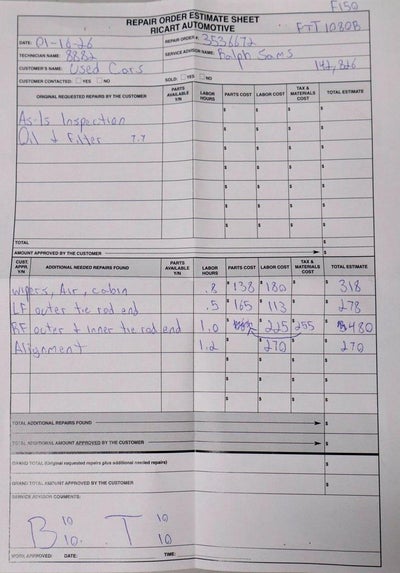 F150
REPAIR ORDER ESTIMATE SHEET
RICART AUTOMOTIVE
FTT 1080B
DATE: 01-16-26 REPAIR ORDER #: 3536672
TECHNICIAN NAME: 8882 SERVICE ADVISOR NAME: Ralph Sams
CUSTOMER'S NAME: Used Cars 142,826
CUSTOMER CONTACTED: YES NO SOLD: YES NO
ORIGINAL REQUESTED REPAIRS BY THE CUSTOMER PARTS AVAILABLE Y/N LABOR HOURS PARTS COST LABOR COST TAX & MATERIALS COST TOTAL ESTIMATE
As-Is Inspection $ $ $ $
Oil & Filter 7.7 $ $ $ $
$ $ $ $
$ $ $ $
$ $ $ $
$ $ $ $
$ $ $ $
TOTAL $
AMOUNT APPROVED BY THE CUSTOMER $
CUST. APPR. Y/N ADDITIONAL NEEDED REPAIRS FOUND PARTS AVAILABLE Y/N LABOR HOURS PARTS COST LABOR COST TAX & MATERIALS COST TOTAL ESTIMATE
wipers, Air, cabin .8 $ 138 $ 180 $ $ 318
LF outer tie rod end .5 $ 165 $ 113 $ $ 278
RF outer & inner tie rod end 1.0 $ $ 225 $ 255 $ 480
Alignment 1.2 $ $ 270 $ $ 270
$ $ $ $
$ $ $ $
TOTAL ADDITIONAL REPAIRS FOUND $
TOTAL ADDITIONAL AMOUNT APPROVED BY THE CUSTOMER $
GRAND TOTAL (Original requested repairs plus additional needed repairs) $
GRAND TOTAL AMOUNT APPROVED BY THE CUSTOMER $
SERVICE ADVISOR COMMENTS:
B 10 10. T 10 10
WORK APPROVED: DATE: TIME: